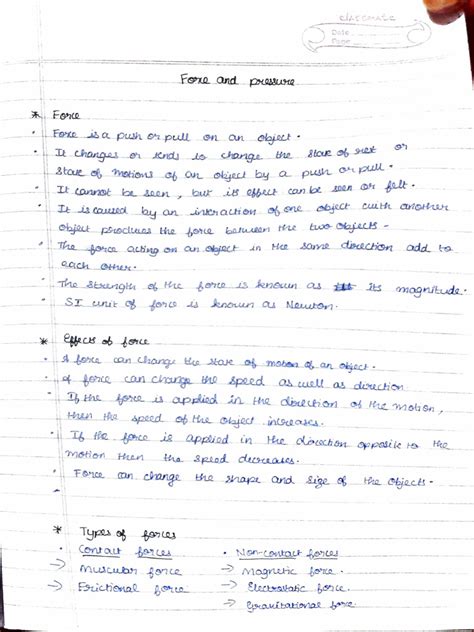 classmate
Date
Page
Force and pressure
* Force
· Force is a push or pull on an object.
· It changes or tends to change the state of rest or
state of motions of an object by a push or pull.
· It cannot be seen, but its effect can be seen or felt.
· It is caused by an interaction of one object with another
object produces the force between the two objects-
· The force acting on an object in the same direction add to
each other.
· The strength of the force is known as its magnitude.
· SI unit of force is known as Newton.
* Effects of force
· A force can change the state of motion of an object.
· A force can change the speed as well as direction
· If the force is applied in the direction of the motion,
then the speed of the object increases.
· If the force is applied in the direction opposite to the
motion then the speed decreases.
· Force can change the shape and size of the objects.
* Types of forces
· Contact forces · Non-contact forces
→ Muscular force → Magnetic force.
→ Frictional force → Electrostatic force
→ Gravitational force